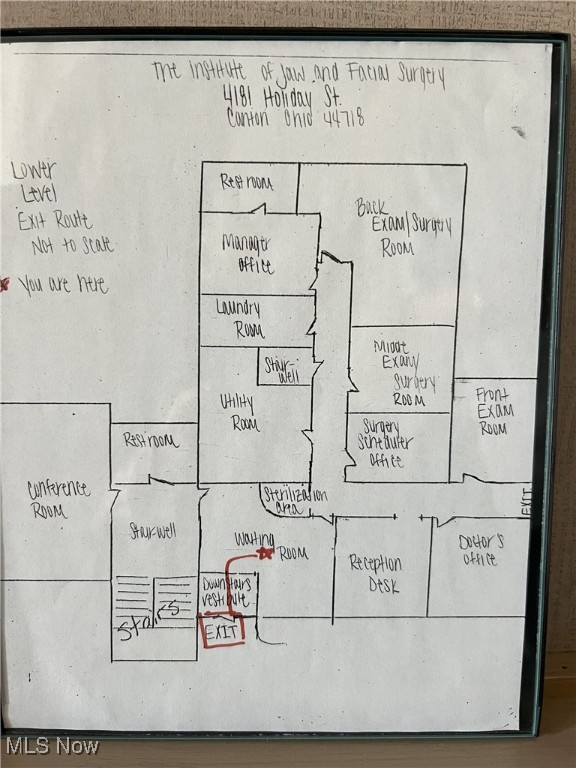 The Institute of Jaw and Facial Surgery
4181 Holiday St.
Canton Ohio 44718
Lower
Level
Exit Route
Not to Scale
You are here
Restroom
Back
Exam/Surgery
Room
Manager
office
Laundry
Room
Stair-
well
Middle
Exam/
Surgery
Room
Utility
Room
Front
Exam
Room
Surgery
Scheduler
Office
Restroom
Conference
Room
Sterilization
area
EXIT
Stairwell
Waiting
Room
Doctor's
office
Reception
Desk
Downstairs
vestibule
Stairs
EXIT
MLS Now